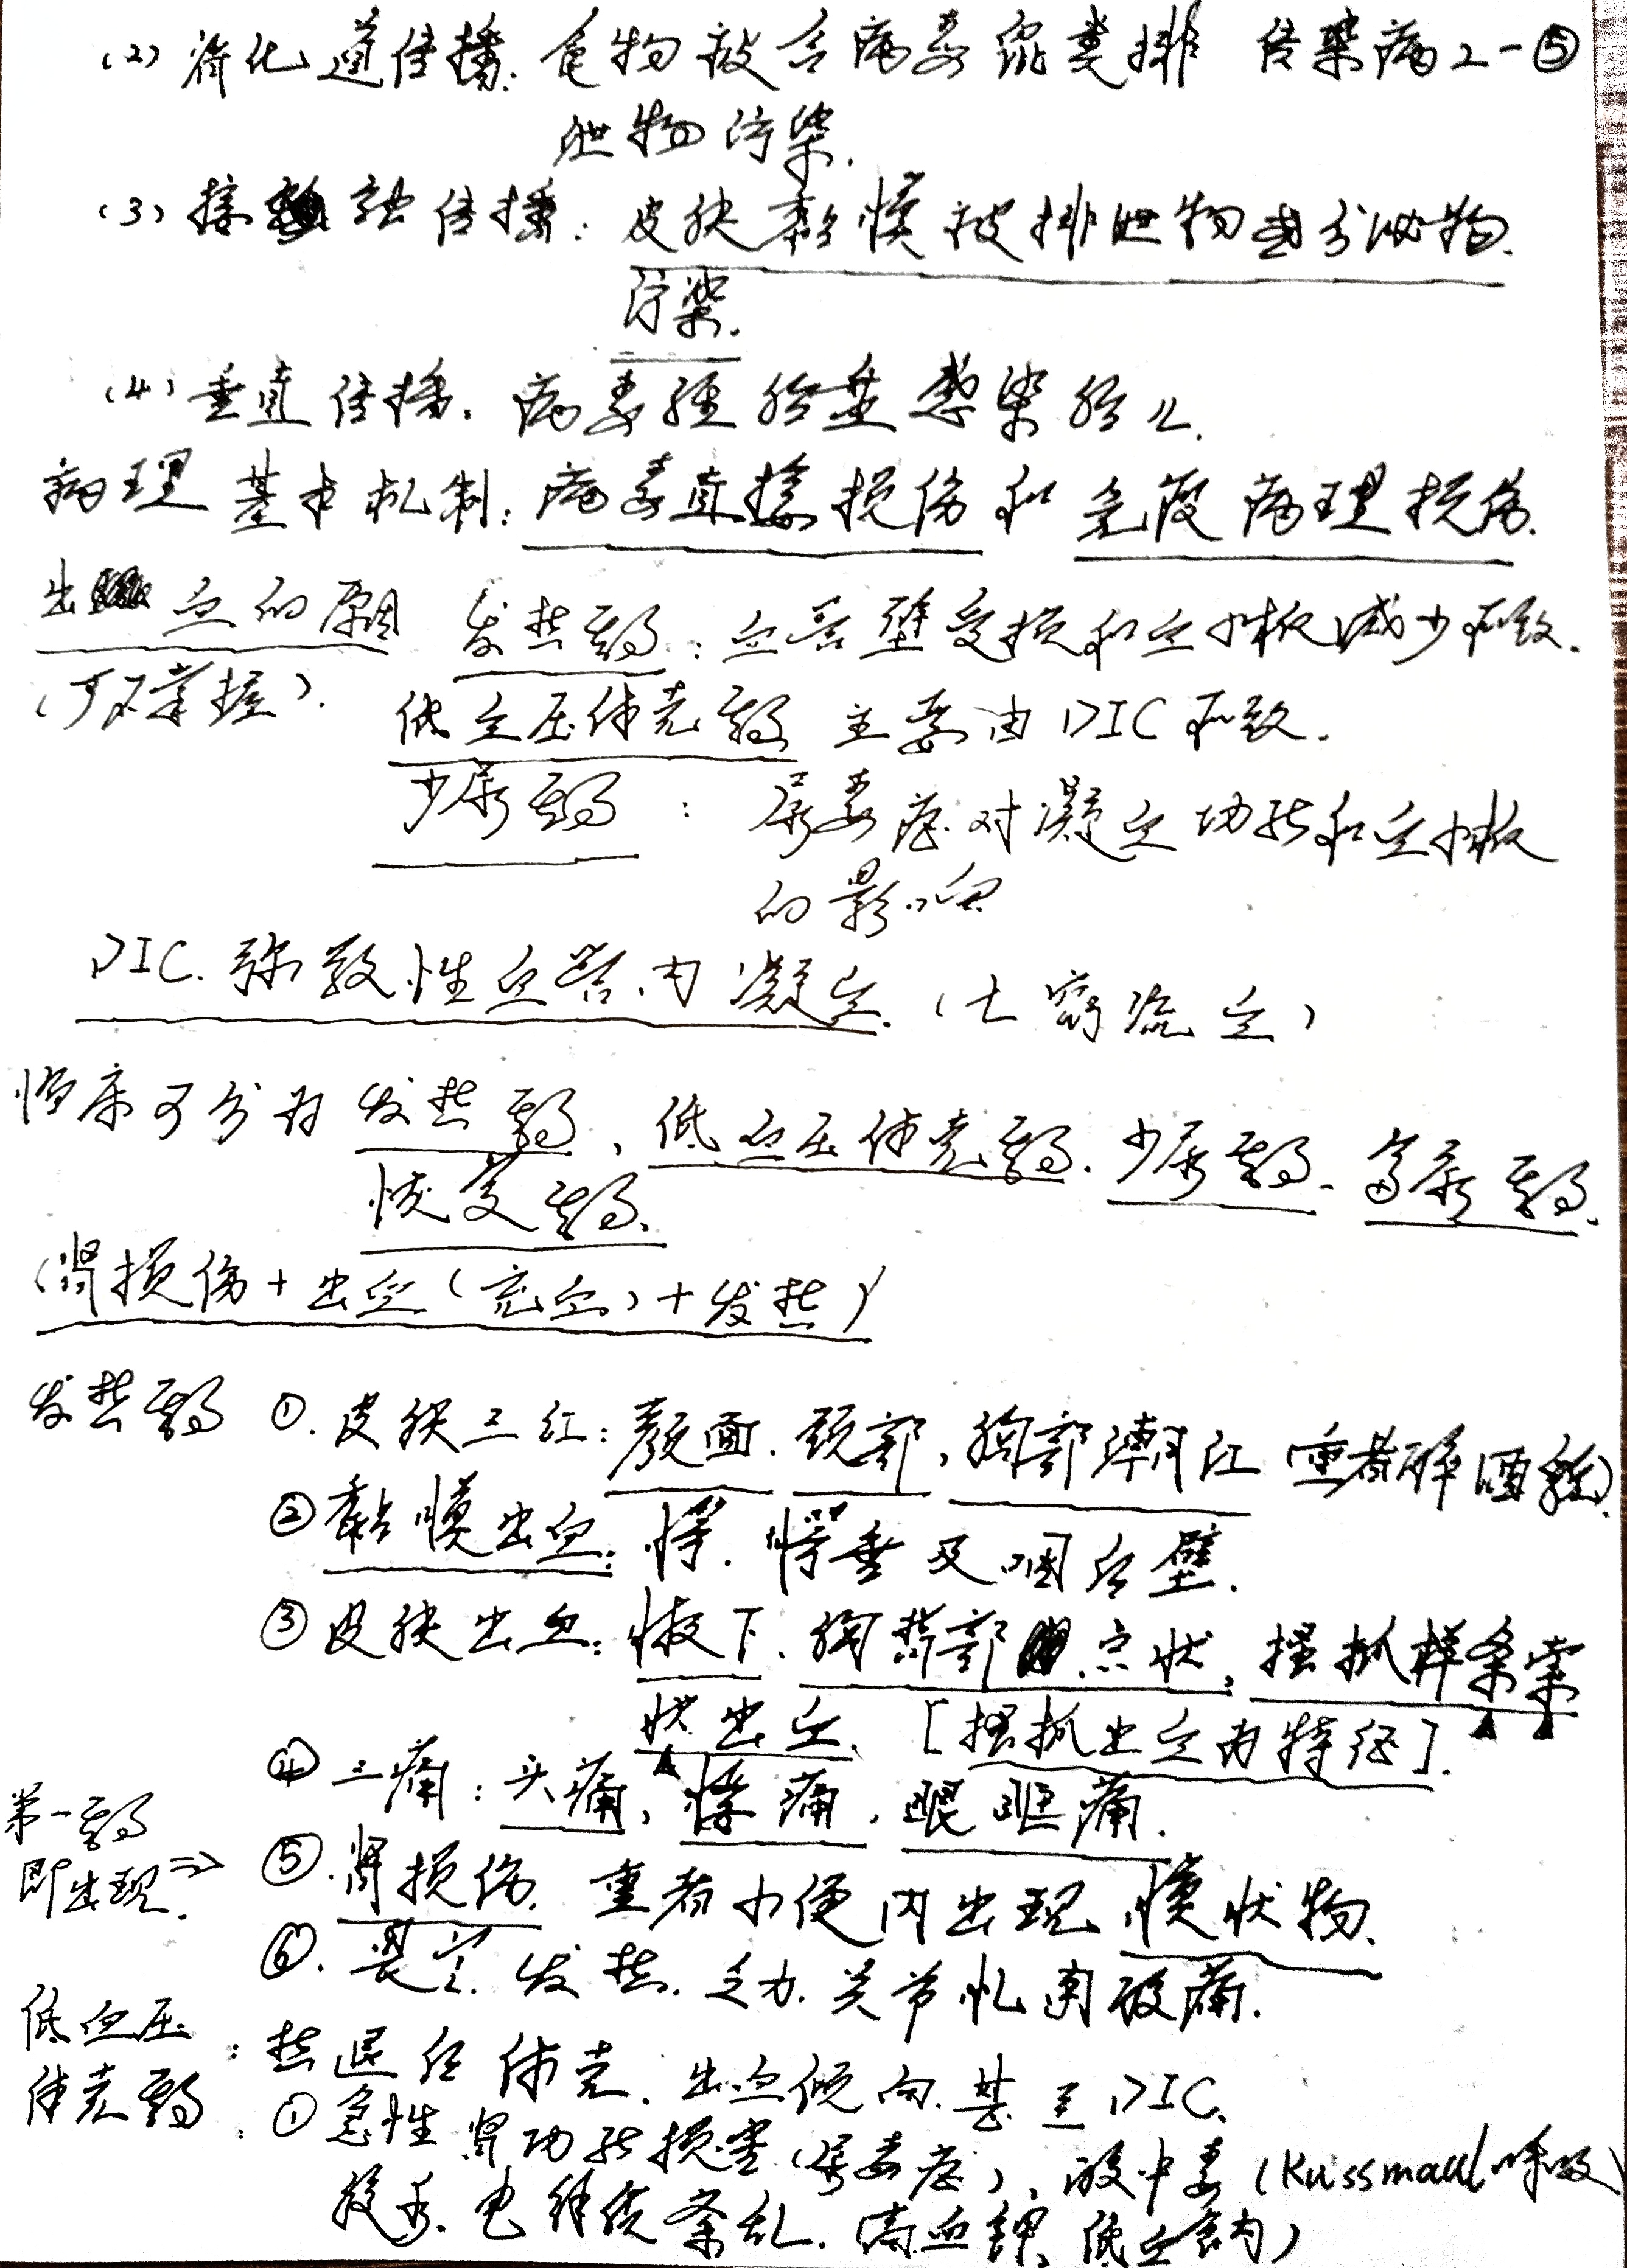 (2) 消化道传播: 食物被含病毒鼠类排 传染病2-⑤
泄物污染.
(3) 接触传播: 皮肤黏膜被排泄物或分泌物
污染.
(4) 垂直传播. 病毒经胎盘感染胎儿.
病理基本机制: 病毒直接损伤和免疫病理损伤.
出血的原因 发热期: 血管壁受损和血小板减少所致.
(可不掌握). 低血压休克期 主要由DIC所致.
少尿期: 尿毒症对凝血功能和血小板
的影响
DIC. 弥散性血管内凝血. (七窍流血)
临床可分为发热期、低血压休克期. 少尿期. 多尿期.
恢复期.
(肾损伤+出血(充血)+发热)
发热期 ①. 皮肤三红: 颜面. 颈部, 胸部潮红 重者醉酒貌).
② 黏膜出血: 腭. 腭垂及咽后壁.
③ 皮肤出血: 腋下. 胸背部点状, 搔抓样条索
状出血. [搔抓出血为特征].
④ 三痛: 头痛、腰痛. 眼眶痛.
第一期
即出现. ⇒ ⑤. 肾损伤. 重者小便内出现膜状物.
⑥. 畏寒. 发热. 乏力. 关节肌肉酸痛.
低血压
休克期: 热退后休克. 出血倾向. 甚至DIC.
: ① 急性肾功能损害(尿毒症)、酸中毒(Kussmaul呼吸)
较重. 电解质紊乱. 高血钾、低血钠)